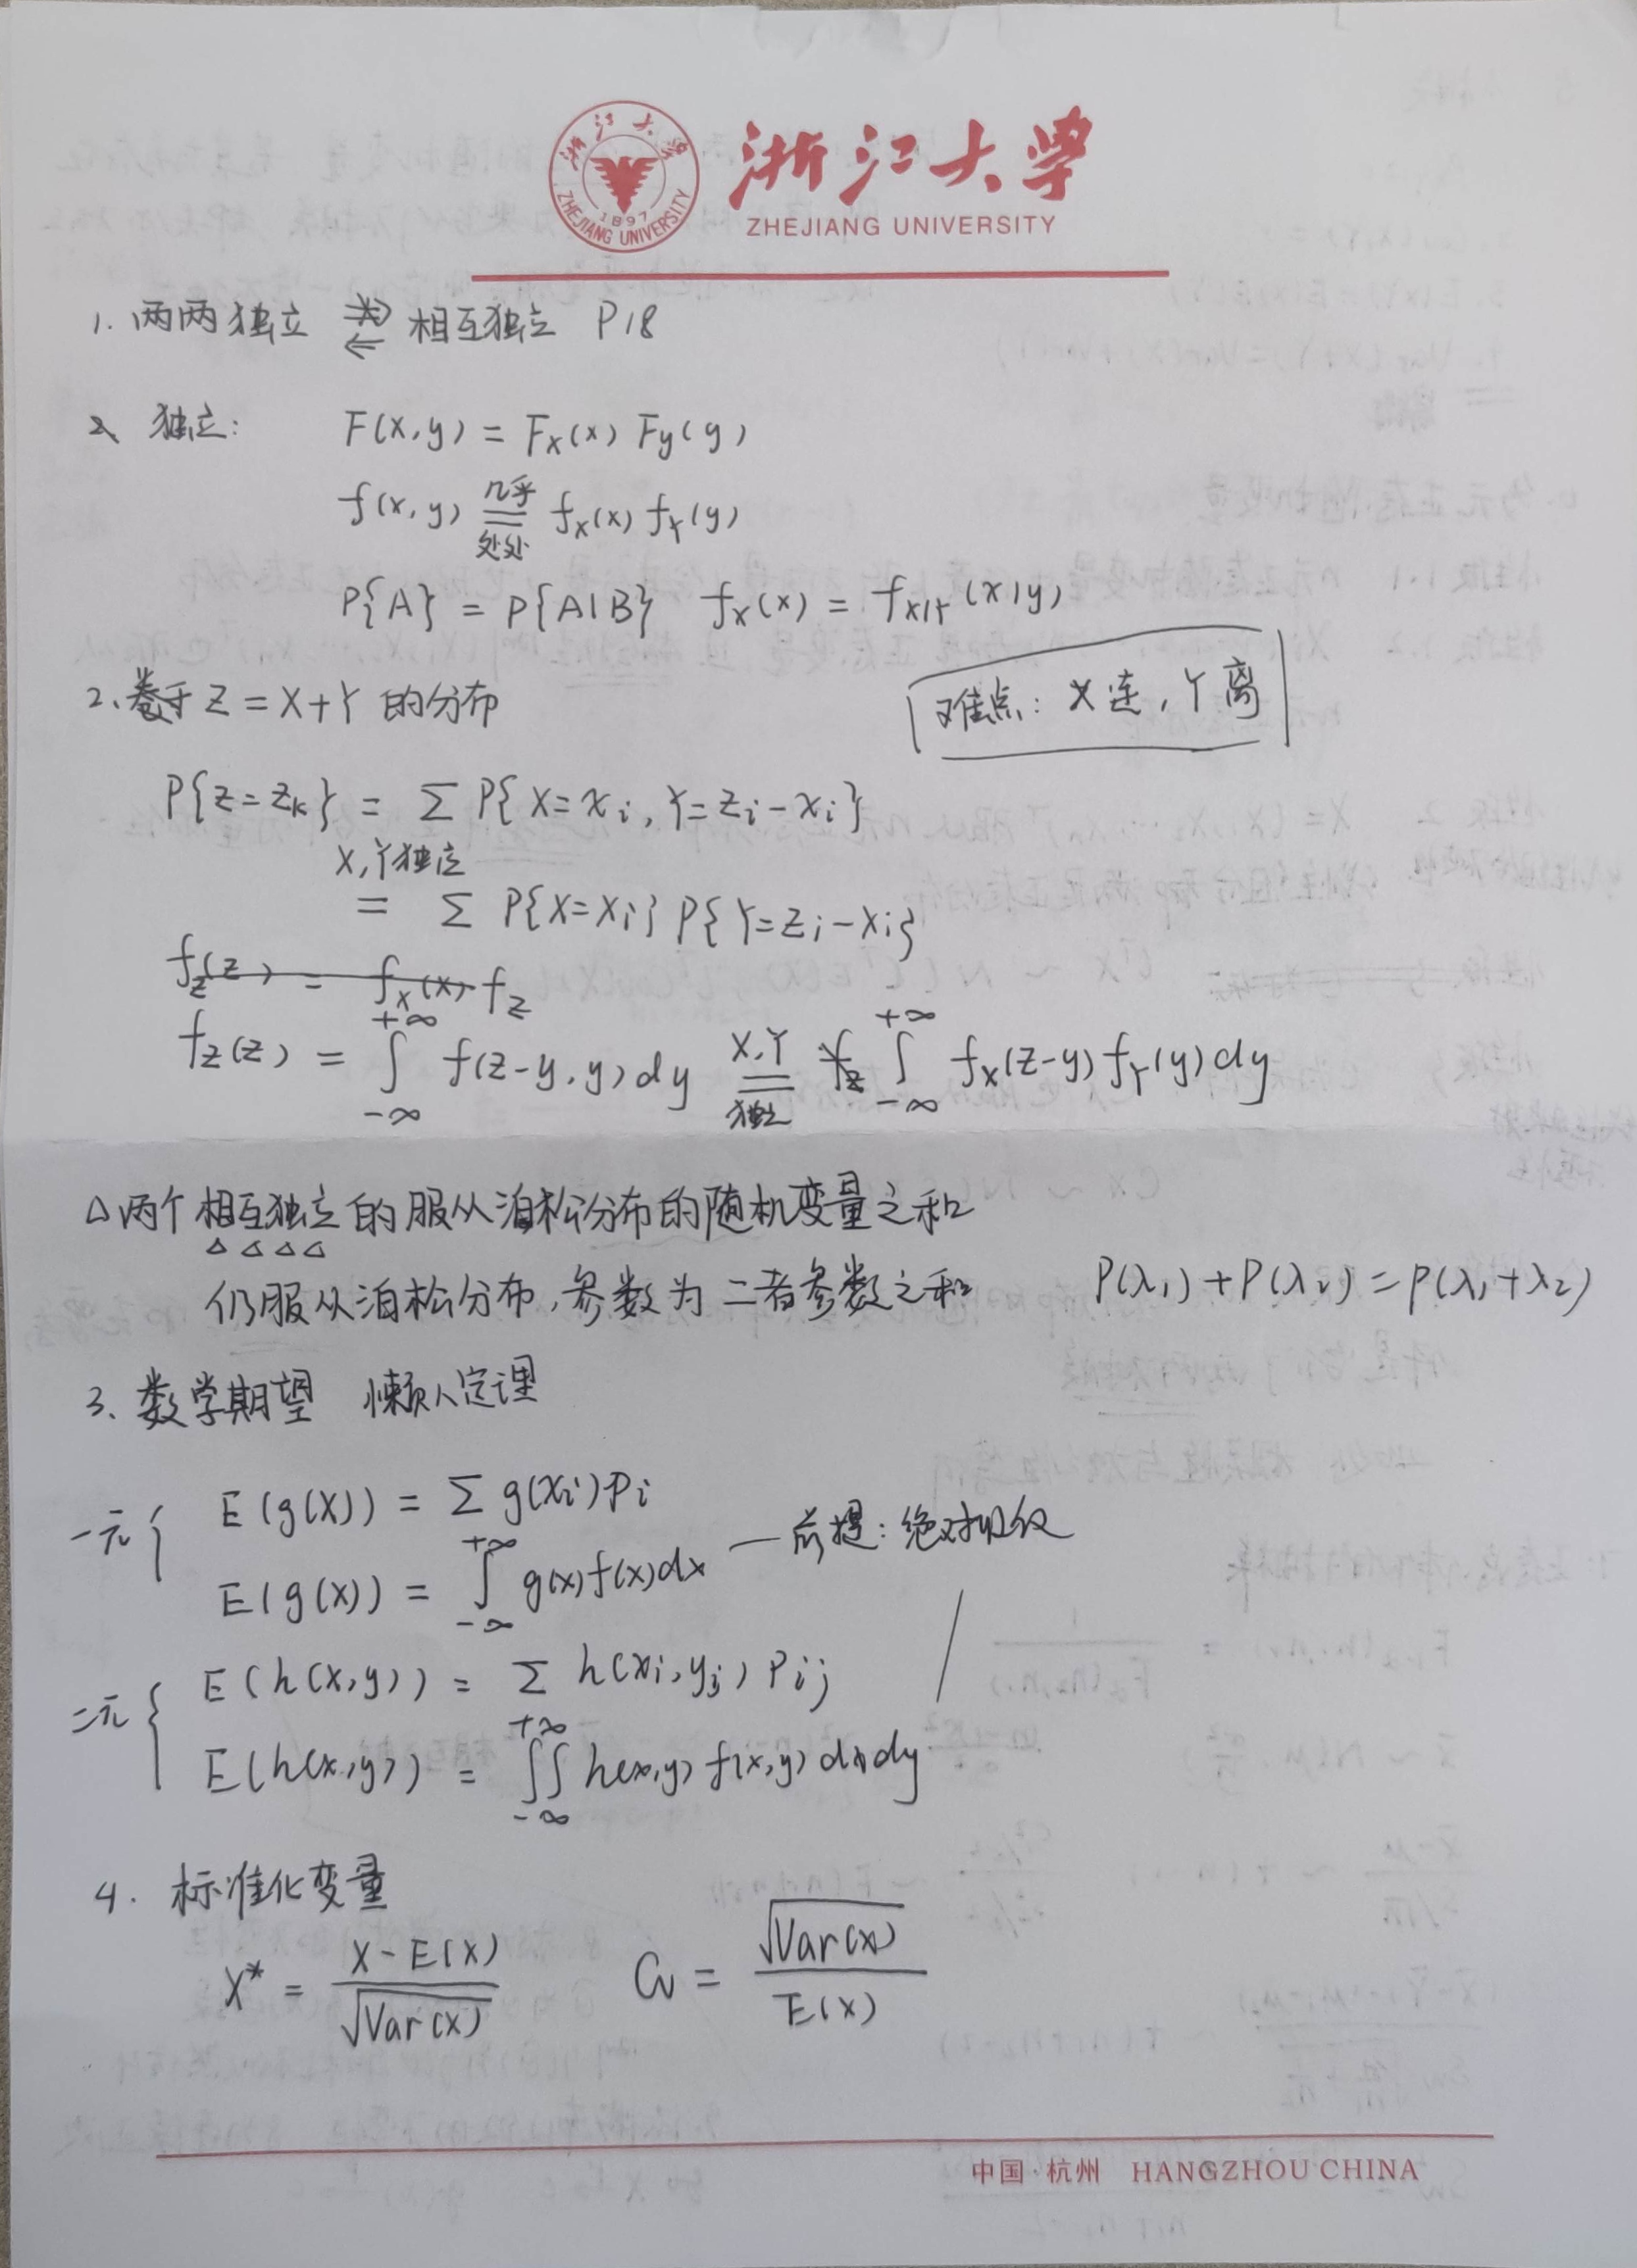 浙江大学
浙江大学
ZHEJIANG UNIVERSITY
1897
ZHEJIANG UNIVERSITY
1. 两两独立 ⇏ ⇐ 相互独立 P18
2、独立: F(x,y) = Fx(x) Fy(y)
f(x,y) 几乎 = 处处 fx(x) fY(y)
P{A} = P{A|B} fx(x) = fX|Y(x|y)
2、基于 Z = X+Y 的分布
难点: X连, Y离
P{Z=Zk} = Σ P{X=xi, Y=Zi-xi}
X,Y独立
= Σ P{X=xi} P{Y=Zi-xi}
fZ(z) = fX(x) fZ
fZ(z) = ∫_{-∞}^{+∞} f(z-y, y) dy X,Y = 独立 ∫_{-∞}^{+∞} fX(z-y) fY(y) dy
△两个相互独立的服从泊松分布的随机变量之和
△△△△
仍服从泊松分布,参数为二者参数之和 P(λ1)+P(λ2)=P(λ1+λ2)
3、数学期望 懒人定理
一元{ E(g(X)) = Σ g(xi)Pi
—前提: 绝对收敛
E(g(X)) = ∫_{-∞}^{+∞} g(x)f(x)dx
二元{ E(h(x,y)) = Σ h(xi,yj) Pij
E(h(x,y)) = ∬_{-∞}^{+∞} h(x,y) f(x,y) dxdy
4. 标准化变量
X* = (X-E(X))/√Var(X) Cv = √Var(X)/E(X)
中国·杭州 HANGZHOU CHINA